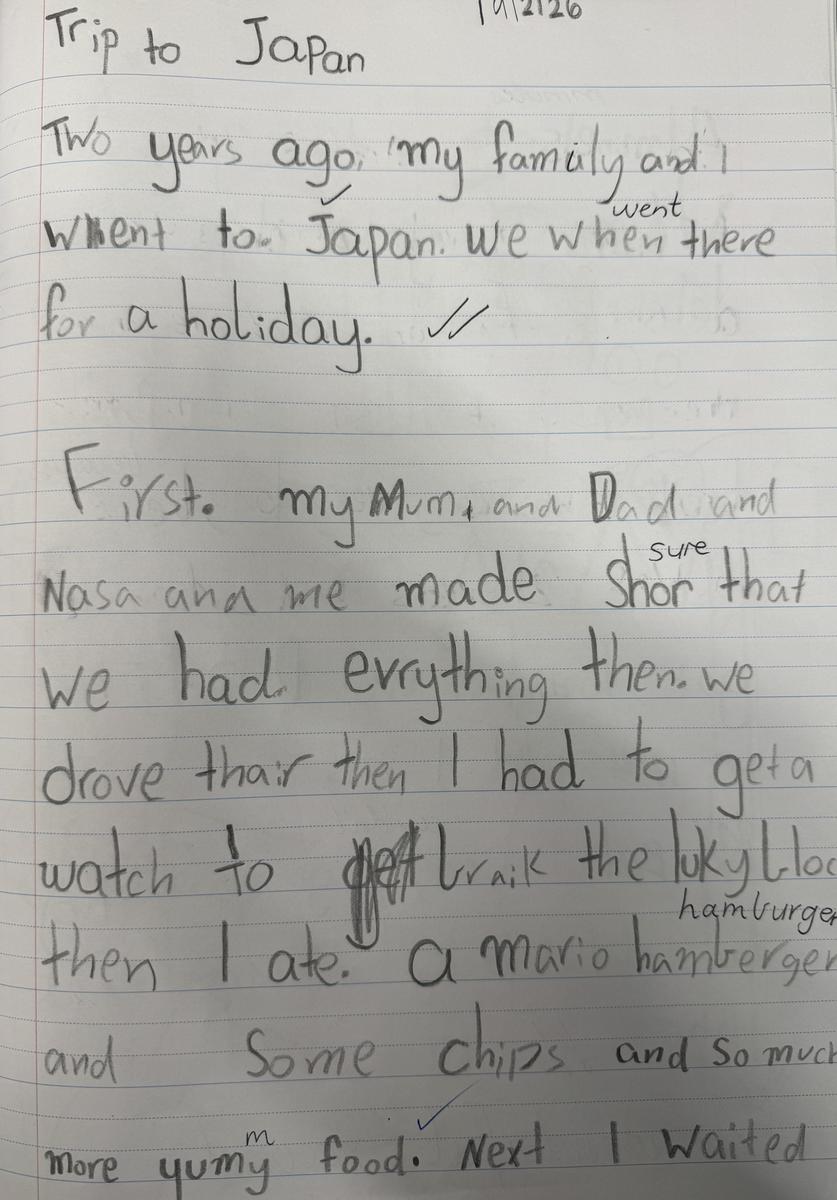 19/2/26
Trip to Japan
Two years ago, my famaly and I
whent to. Japan. We when there
went
for a holiday.
First. my Mum, and Dad and
Nasa and me made Shor that
sure
we had. evrything then. we
drove thair then I had to get a
watch to braik the lukybloc
then I ate. a mario hamberger
hamburger
and Some chips and So much
more yumy food. Next I Waited
m